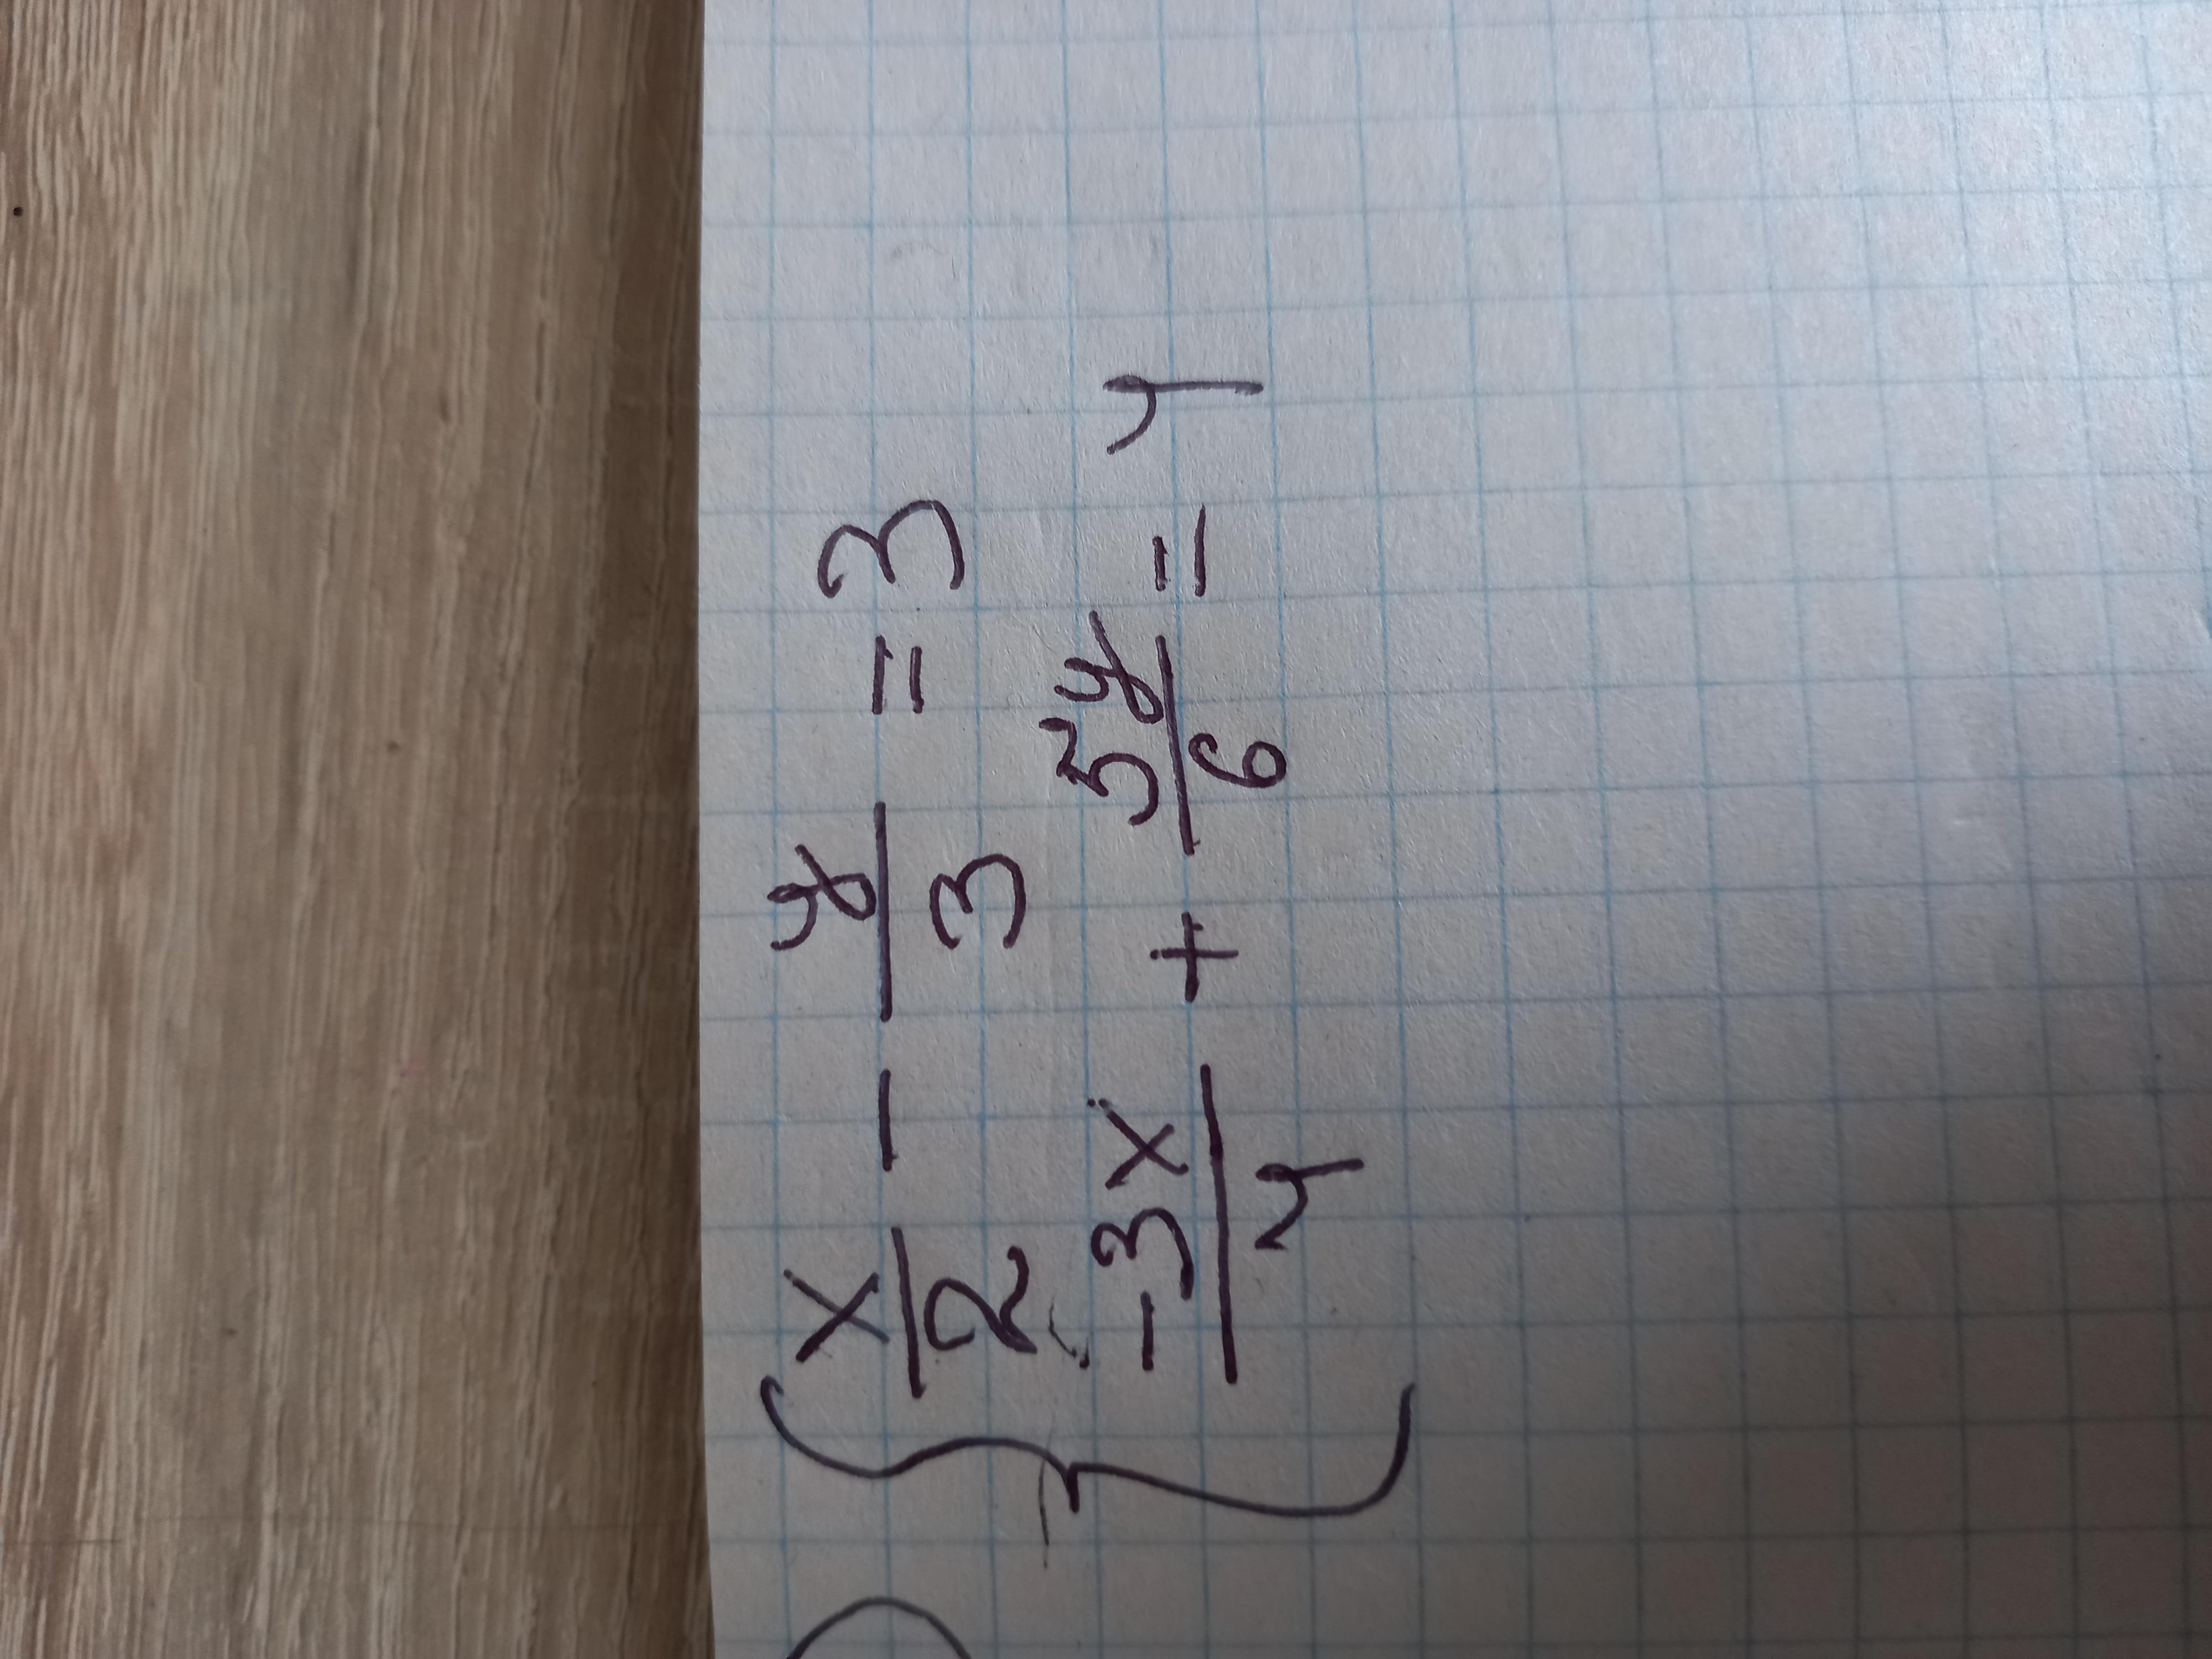 { x/2 - y/3 = 3
-3x/4 + 5y/6 = 4